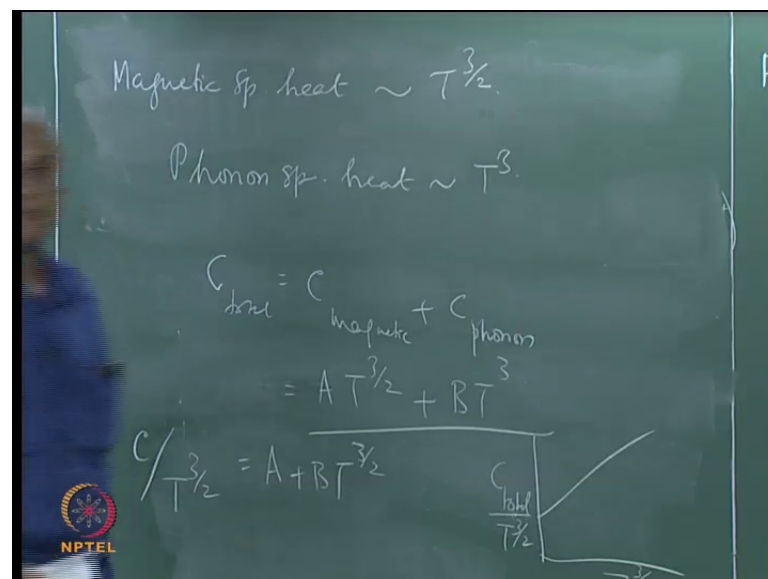 Magnetic sp. heat ~ T^3/2.
Phonon sp. heat ~ T^3.
C_total = C_magnetic + C_phonon
= A T^3/2 + B T^3
C/T^3/2 = A + B T^3/2
C_total / T^3/2
NPTEL